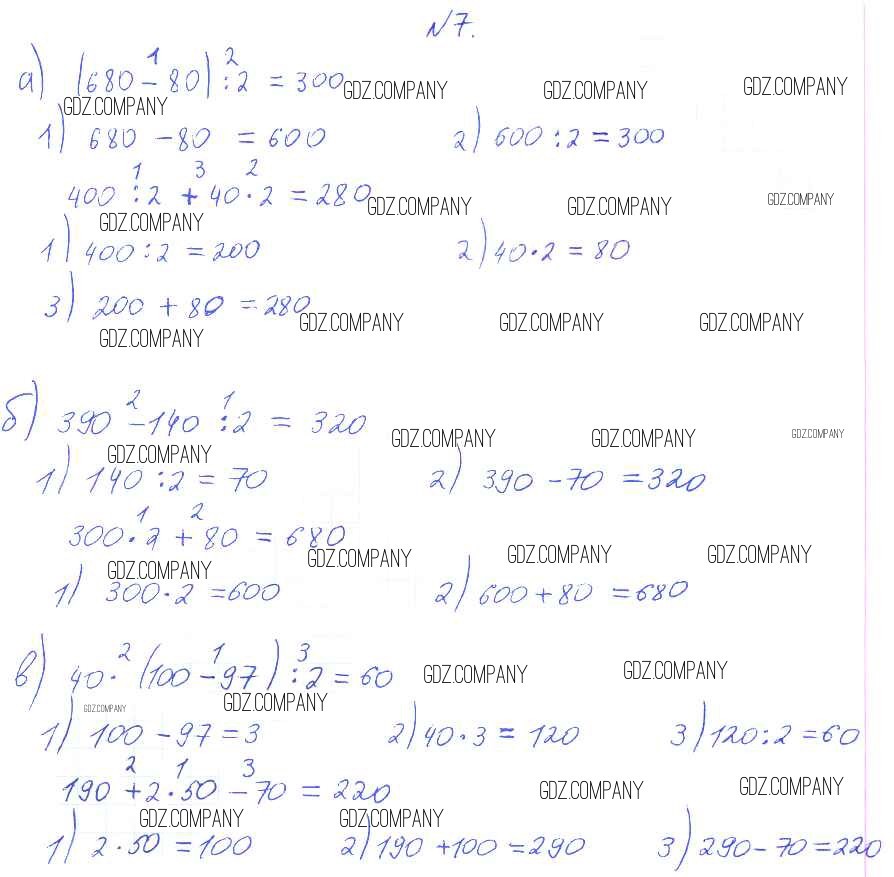 N7.
1 2
а) (680 - 80) : 2 = 300 GDZ.COMPANY GDZ.COMPANY GDZ.COMPANY
GDZ.COMPANY
1) 680 - 80 = 600 2) 600 : 2 = 300
1 3 2
400 : 2 + 40 · 2 = 280 GDZ.COMPANY GDZ.COMPANY GDZ.COMPANY
GDZ.COMPANY
1) 400 : 2 = 200 2) 40 · 2 = 80
3) 200 + 80 = 280 GDZ.COMPANY GDZ.COMPANY GDZ.COMPANY
GDZ.COMPANY
2 1
б) 390 - 140 : 2 = 320 GDZ.COMPANY GDZ.COMPANY GDZ.COMPANY
GDZ.COMPANY
1) 140 : 2 = 70 2) 390 - 70 = 320
1 2
300 · 2 + 80 = 680 GDZ.COMPANY GDZ.COMPANY GDZ.COMPANY
GDZ.COMPANY
1) 300 · 2 = 600 2) 600 + 80 = 680
2 1 3
в) 40 · (100 - 97) : 2 = 60 GDZ.COMPANY GDZ.COMPANY
GDZ.COMPANY GDZ.COMPANY
1) 100 - 97 = 3 2) 40 · 3 = 120 3) 120 : 2 = 60
2 1 3
190 + 2 · 50 - 70 = 220 GDZ.COMPANY GDZ.COMPANY
GDZ.COMPANY GDZ.COMPANY
1) 2 · 50 = 100 2) 190 + 100 = 290 3) 290 - 70 = 220